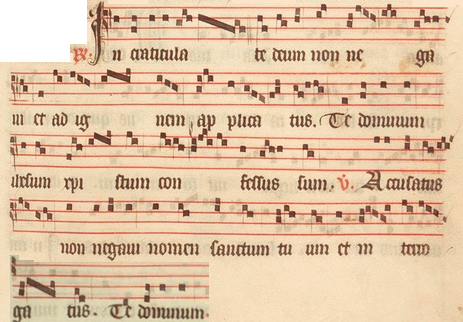 R. In craticula te deum non ne ga
ui et ad ig nem ap plica tus. Te dominum
ihesum xpi stum con fessus sum. V. Accusatus
non negaui nomen sanctum tu um et in terro
ga tus. Te dominum.